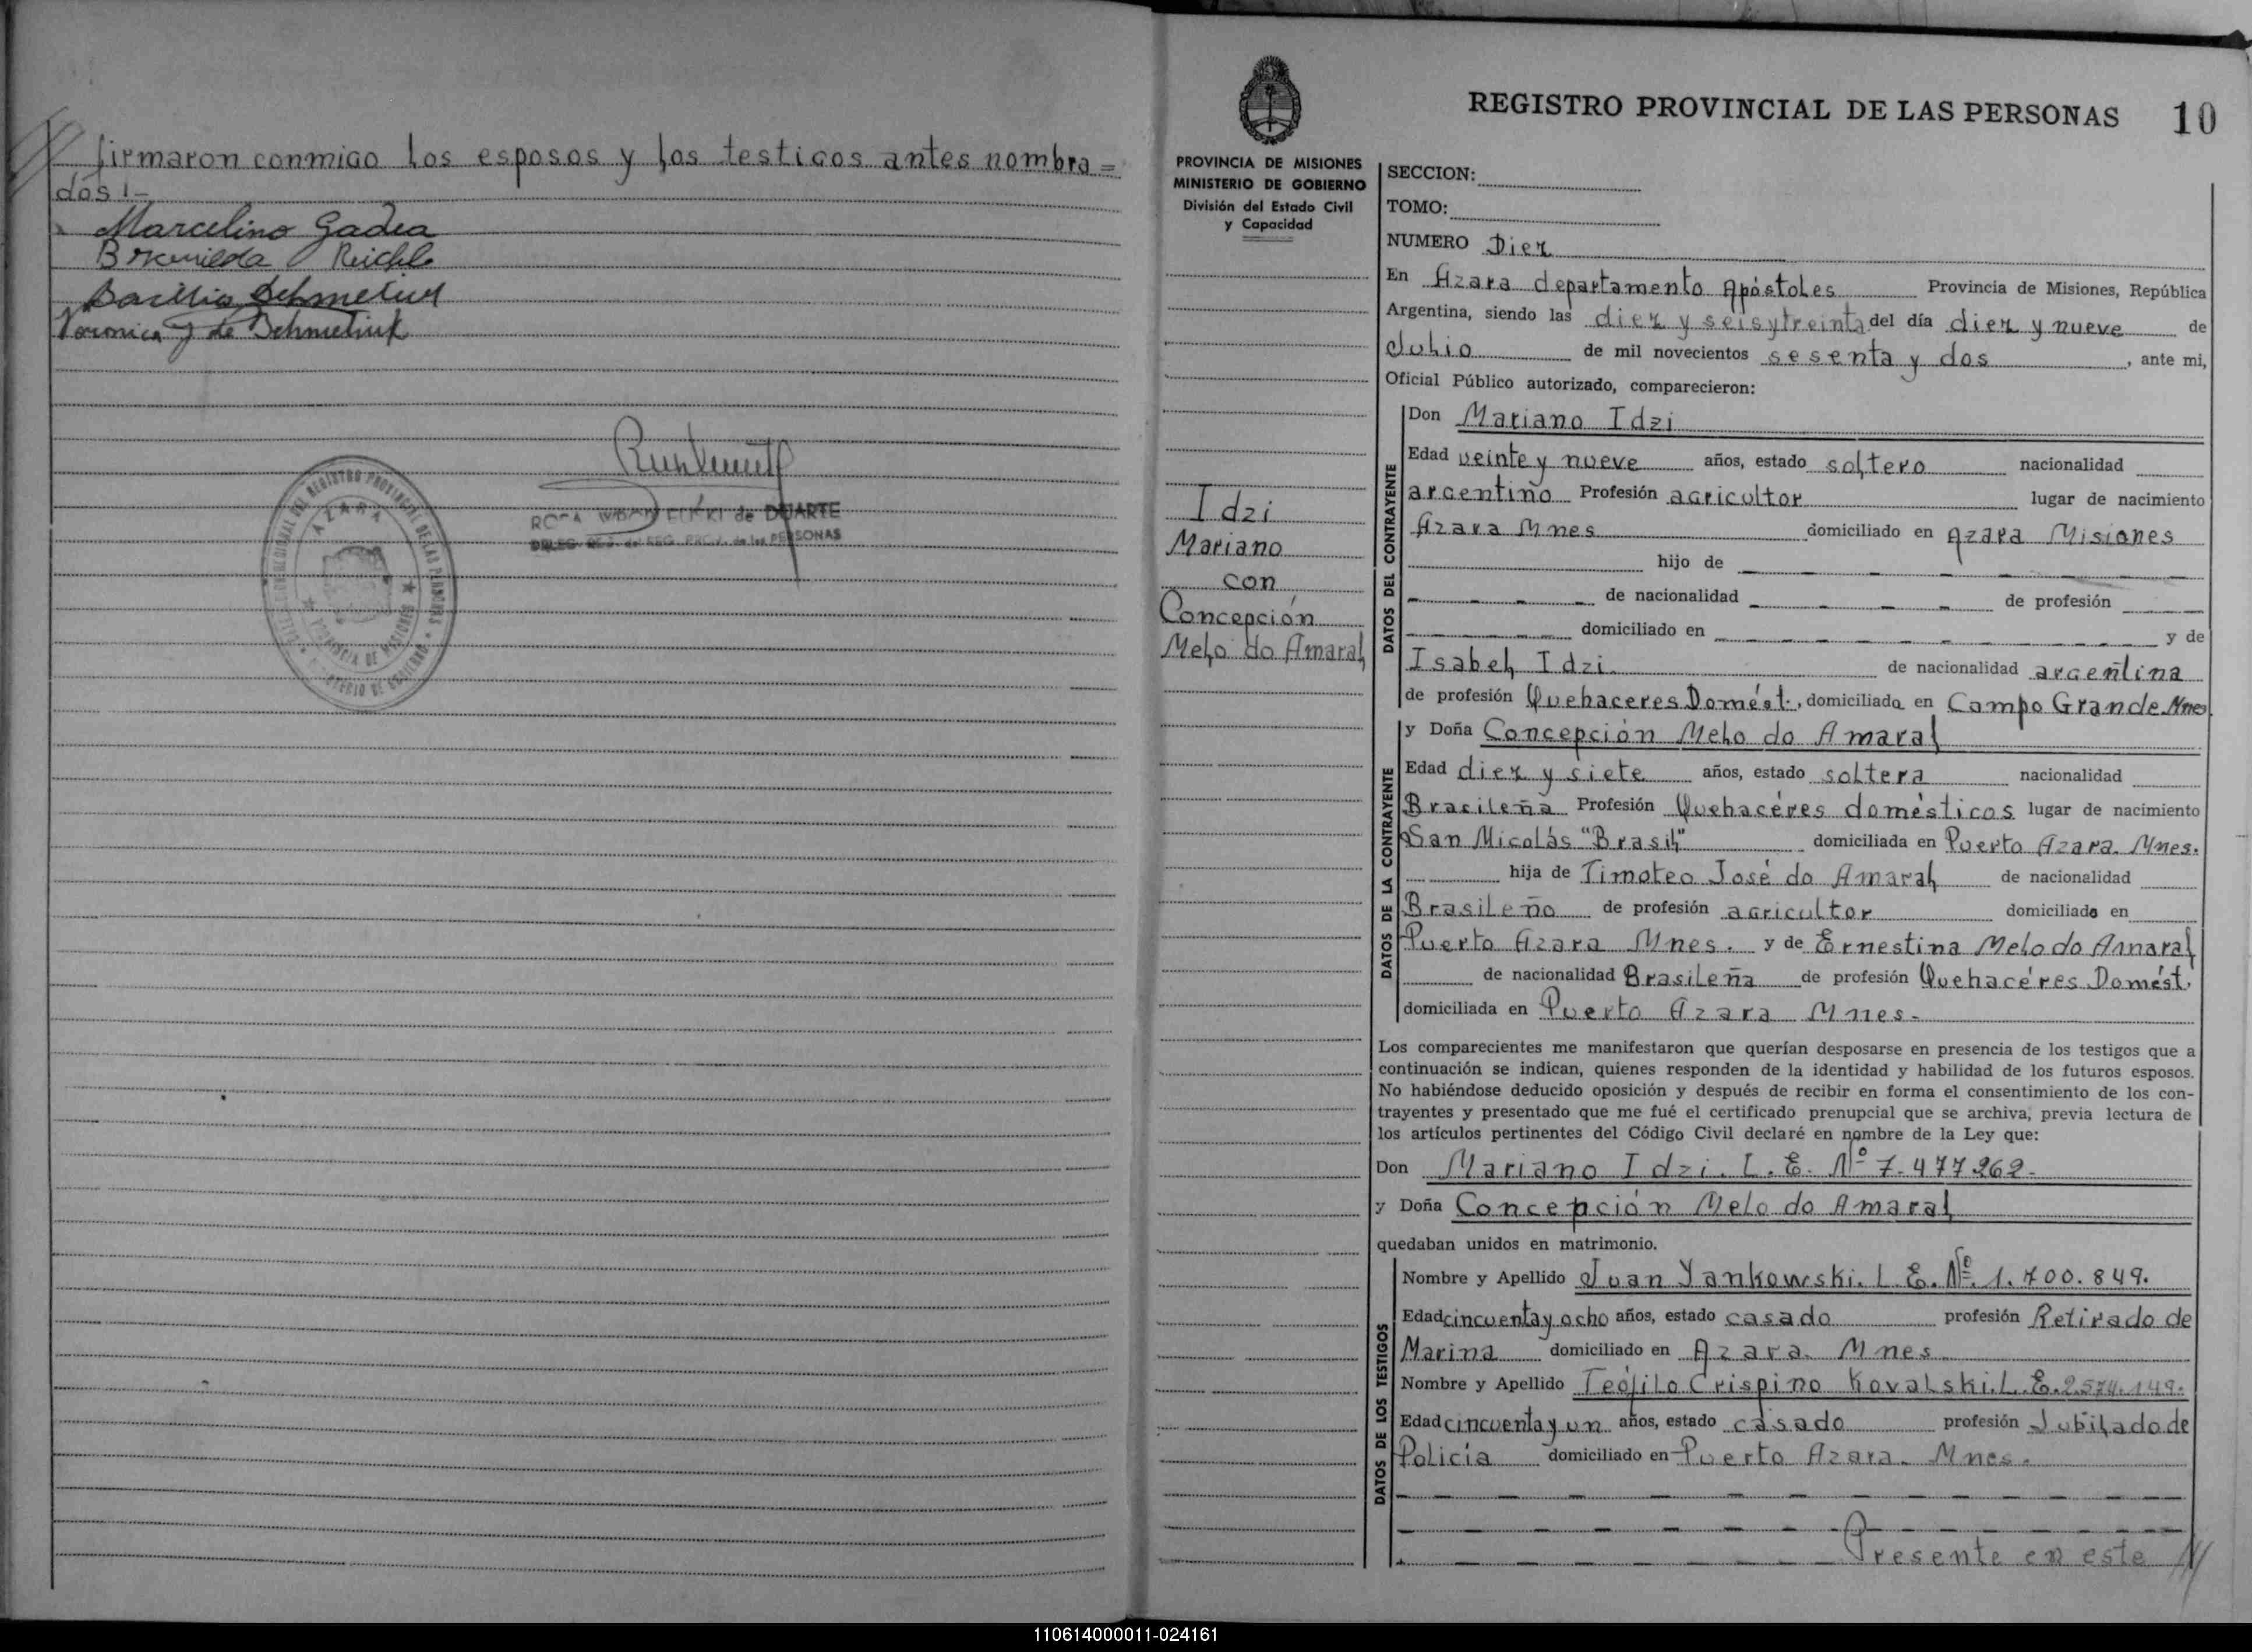 firmaron conmigo los esposos y los testigos antes nombra=
dos!-
Marcelino Gadea
Reichle
Basilio Schmeliuk
Veronica J de Schmeliuk
ROSA de DUARTE
DELEG. REG. del REG. PROV. de las PERSONAS
DEL REGISTRO PROVINCIAL DE LAS PERSONAS
AZARA
PROVINCIA DE MISIONES
MINISTERIO DE GOBIERNO
REGISTRO PROVINCIAL DE LAS PERSONAS 10
PROVINCIA DE MISIONES
MINISTERIO DE GOBIERNO
División del Estado Civil
y Capacidad
Idzi
Mariano
con
Concepción
Melo do Amaral
SECCION:
TOMO:
NUMERO Diez
En Azara departamento Apóstoles Provincia de Misiones, República
Argentina, siendo las diez y seis y treinta del día diez y nueve de
Julio de mil novecientos sesenta y dos, ante mi,
Oficial Público autorizado, comparecieron:
DATOS DEL CONTRAYENTE
Don Mariano Idzi
Edad veinte y nueve años, estado soltero nacionalidad
argentino Profesión agricultor lugar de nacimiento
Azara Mnes domiciliado en Azara Misiones
hijo de
de nacionalidad de profesión
domiciliado en y de
Isabel Idzi de nacionalidad argentina
de profesión Quehaceres Domést., domiciliada en Campo Grande Mnes
DATOS DE LA CONTRAYENTE
y Doña Concepción Melo do Amaral
Edad diez y siete años, estado soltera nacionalidad
Brasileña Profesión Quehacéres domésticos lugar de nacimiento
San Nicolás "Brasil" domiciliada en Puerto Azara Mnes.
hija de Timoteo José do Amaral de nacionalidad
Brasileño de profesión agricultor domiciliado en
Puerto Azara Mnes. y de Ernestina Melo do Amaral
de nacionalidad Brasileña de profesión Quehacéres Domést.
domiciliada en Puerto Azara Mnes-
Los comparecientes me manifestaron que querían desposarse en presencia de los testigos que a
continuación se indican, quienes responden de la identidad y habilidad de los futuros esposos.
No habiéndose deducido oposición y después de recibir en forma el consentimiento de los con-
trayentes y presentado que me fué el certificado prenupcial que se archiva, previa lectura de
los artículos pertinentes del Código Civil declaré en nombre de la Ley que:
Don Mariano Idzi. L. E. Nº 7.477262-
y Doña Concepción Melo do Amaral
quedaban unidos en matrimonio.
DATOS DE LOS TESTIGOS
Nombre y Apellido Juan Yankowski. L. E. Nº. 1.700.849.
Edad cincuenta y ocho años, estado casado profesión Retirado de
Marina domiciliado en Azara. Mnes.
Nombre y Apellido Teófilo Crispino Kovalski. L. E. 2.574.149.
Edad cincuenta y un años, estado casado profesión Jubilado de
Policía domiciliado en Puerto Azara. Mnes.
Presente en este
110614000011-024161